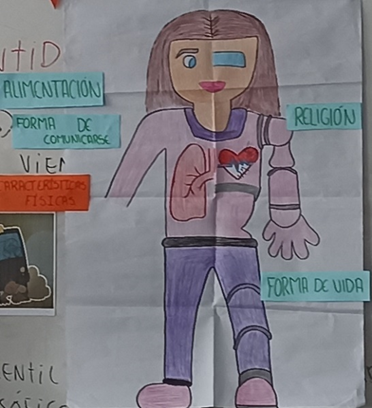 NTID
ALIMENTACIÓN
FORMA DE
COMUNICARSE
RELIGIÓN
VIEN
CARACTERÍSTICAS
FÍSICAS
FORMA DE VIDA
ENTIL